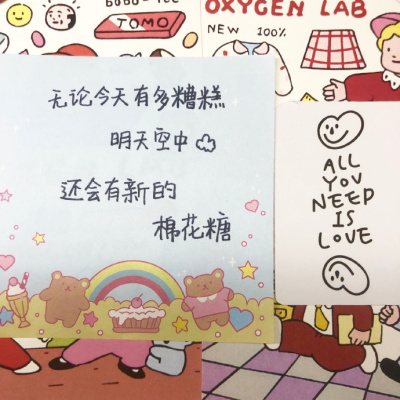 TOMO
OXYGEN LAB
NEW 100%
无论今天有多糟糕
明天空中
还会有新的
棉花糖
ALL
YOU
NEED
IS
LOVE